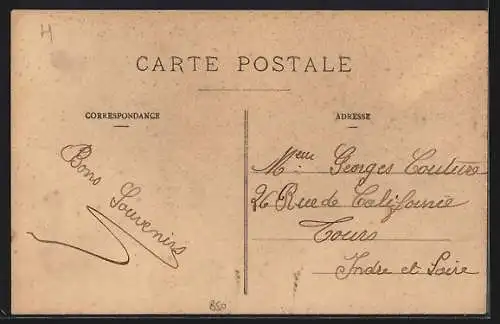 H
CARTE POSTALE
CORRESPONDANCE
ADRESSE
Bons
Souvenirs
Mr Georges Couture
26 Rue de Californie
Tours
Indre et Loire
850